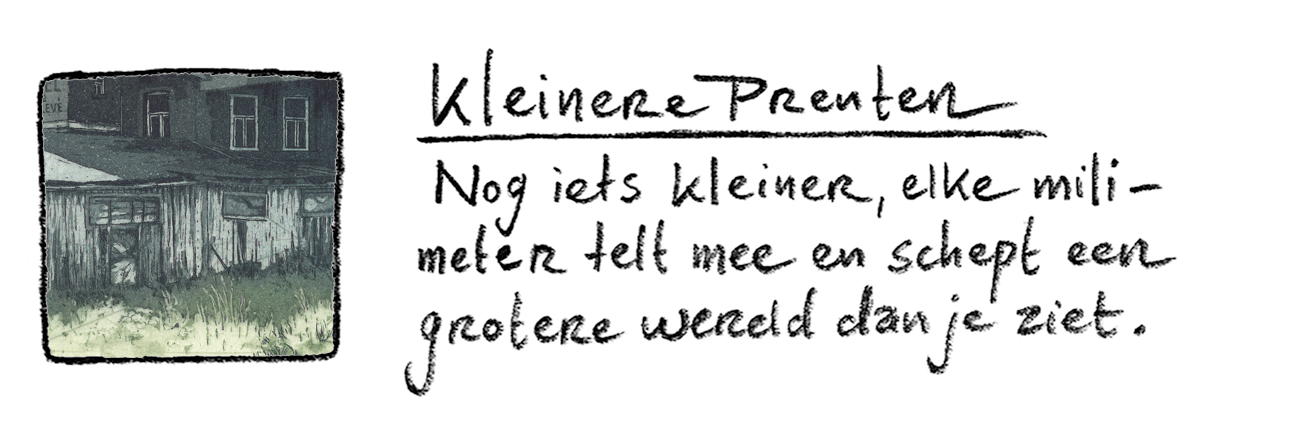 Kleinere Prenten
Nog iets kleiner, elke mili-
meter telt mee en schept een
grotere wereld dan je ziet.